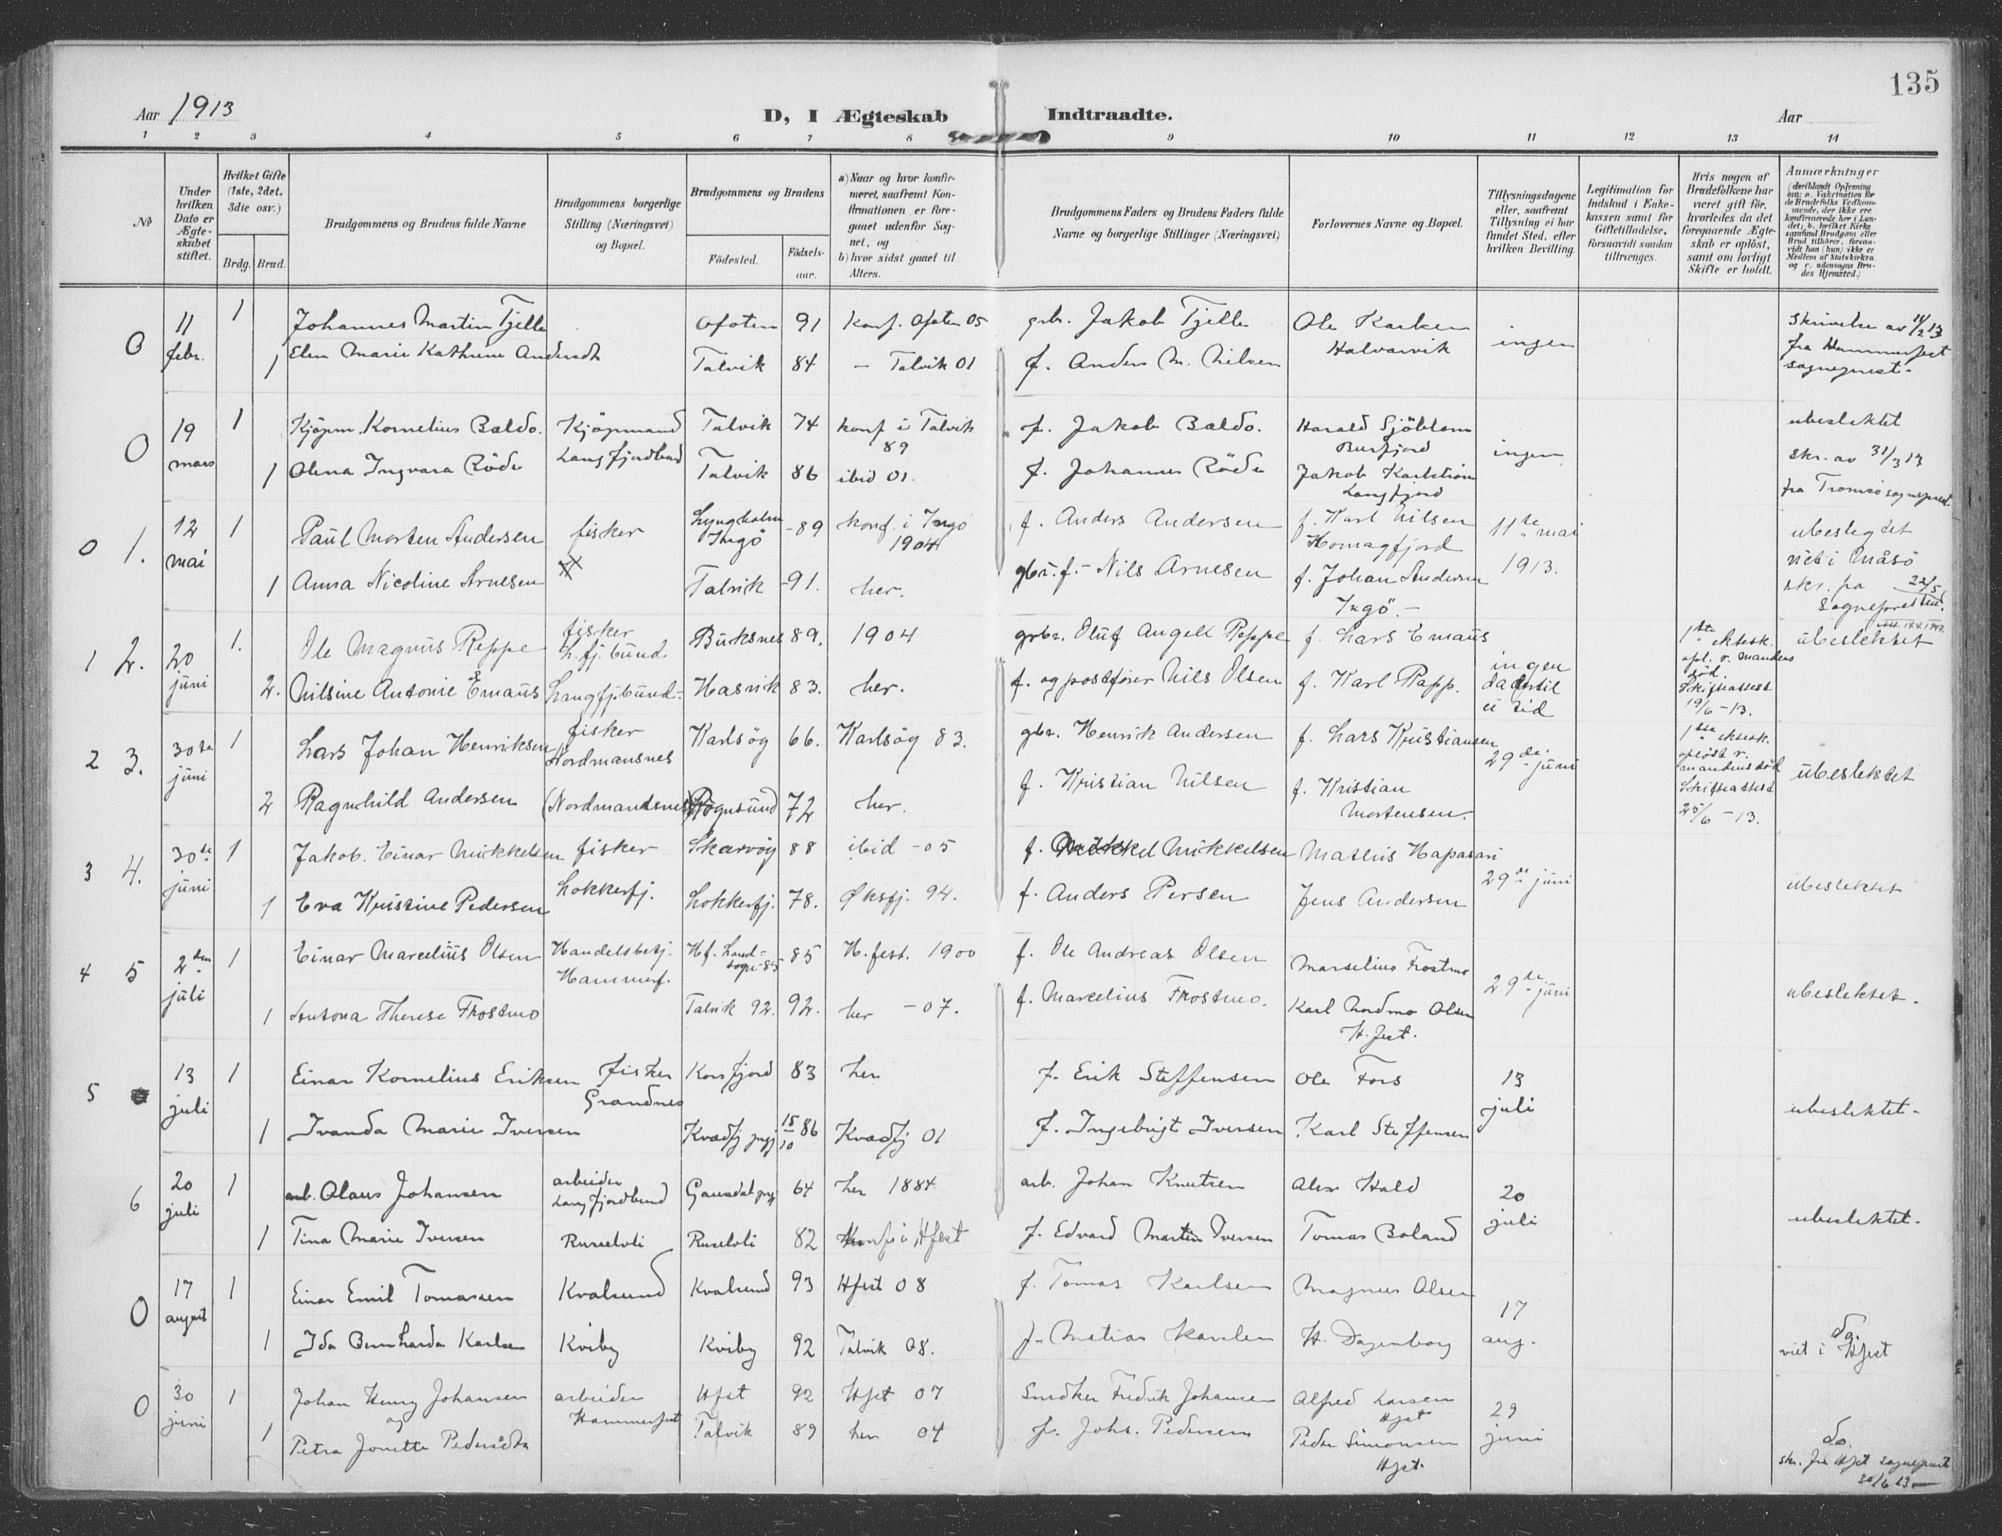 135
Aar 1913
D, I Ægteskab Indtraadte.
Aar
1 2 3 4 5 6 7 8 9 10 11 12 13 14
No
Under hvilken Dato er Ægteskabet stiftet.
Hvilket Gifte (1ste, 2det, 3die osv.)
Brdg. Brud.
Brudgommens og Brudens fulde Navne
Brudgommens borgerlige Stilling (Næringsvei) og Bopæl.
Brudgommens og Brudens
Födested. Födselsaar.
a) Naar og hvor konfirmeret, saafremt Konfirmationen er foregaaet udenfor Sognet, og
b) hvor sidst gaaet til Alters.
Brudgommens Faders og Brudens Faders fulde Navne og borgerlige Stillinger (Næringsvei)
Forlovernes Navne og Bopæl.
Tillysningsdagene eller, saafremt Tillysning ei har fundet Sted, efter hvilken Bevilling.
Legitimation for Indskud i Enkekassen samt for Giftetilladelse, forsaavidt saadan tiltrænges.
Hvis nogen af Brudefolkene har været gift før, hvorledes da det foregaaende Ægteskab er opløst, samt om lovligt Skifte er holdt.
Anmærkninger
0 11 febr. 1 Johannes Martin Tjelle Ofoten 91 konf. Ofoten 05 grb. Jakob Tjelle Ole Karken Halvarvik ingen skrivelse av 14/2 13
1 Elen Marie Kathrine Andersdt Talvik 84 – Talvik 01 f. Anders M. Nilsen fra Hammerfest sogneprest.
0 19 mars 1 Kjøpm. Kornelius Baldo. Kjøpmand Langfjordbund Talvik 74 konf i Talvik 89 f. Jakob Baldo. Harald Sjöblom Burfjord ingen ubeslektet
1 Olena Ingvara Röde Talvik 86 ibid 01. f. Johannes Röde Jakob Karlström Langfjord skr. av 31/3 13 fra Tromsö sogneprest
0 1. 12 mai 1 Paul Morten Andersen fisker Lyngholm Ingö -89 konf. i Ingö 1904 f. Anders Andersen f. Karl Nilsen Komagfjord 11te mai 1913. ubeslegtet
1 Anna Nicoline Arnesen Talvik -91. her. gbr. f.- Nils Arnesen f. Johan Andersen Ingö.- viet i Måsö skr. fra sognepresten. 22/5
1 2. 20 juni 1. Ole Magnus Reppe fisker L.fj.bund. Buksnes 89. 1904 grbr. Oluf Angell Reppe f. Lars Emaus ingen dertil ei tid 1ste ektesk. opl. v. mandens död. Skifteattest 19/6-13. ubeslektet
2. Nilsine Antonie Emaus Langfj.bund- Hasvik 83. her. f. og postfører Nils Olsen f. Karl Rapp.
2 3. 30te juni 1 Lars Johan Henriksen fisker Nordmansnes Karlsøy 66. Karlsøy 83. gbr. Henrik Andersen f. Lars Kristiansen 29de juni 1ste ektesk. opløst v. mandens död Skifteattest 25/6-13. ubeslektet
2 Ragnhild Andersen (Nordmandsnes) Rognsund 72 her. f. Kristian Nilsen f. Kristian Mortensen.
3 4. 30te juni 1 Jakob. Einar Mikkelsen fisker Lokkerfj. Skærvöy 88 ibid -05 f. Mikkel Mikkelsen Mathis Hapasari 29de juni ubeslektet
1 Eva Kristine Pedersen Lokkerfj. 78. Øksfj. 94. f. Anders Persen Jens Andersen
4 5 2den juli 1 Einar Marcelius Olsen Handelsbetj. Hammerf. Hf. Landsogn 85 85 H.fest. 1900 f. Ole Andreas Olsen Marselius Frostmo 29de juni ubeslektet.
1 Antona Therese Frostmo Talvik 92. 92. her -07. f. Marcelius Frostmo. Karl Nordmo Olsen H.fest.
5 13 juli 1 Einar Kornelius Eriksen fisker Grandnes Korsfjord 83 her f. Erik Steffensen Ole Fors 13 juli ubeslektet-
1 Ivanda Marie Iversen Kvædfj prgj 15/10 86 Kvædfj 01 f. Ingebrigt Iversen Karl Steffensen
6 20 juli 1 arb. Olaus Johansen arbeider Langfjordbund Gausdal prgj 64 her 1884 arb. Johan Knutsen Alex Hald 20 juli ubeslektet.
1 Tina Marie Iversen Russelvli Russelvli 82 konf i Hfest f. Edvard Martin Iversen Tomas Boland
0 17 august 1 Einar Emil Tomassen Kvalsund Kvalsund 93 Hfest 08 f. Tomas Karlsen Magnus Olsen 17 aug.
1 Ida Bernharda Karlsen Kviby Kviby 92 Talvik 08. f. Matias Karlsen H. Dagenborg do. viet i Hfest
0 30 juni 1 Johan Henry Johansen arbeider Hammerfest Hfest 92 Hfst 07 Snedker Fredrik Johansen Alfred Larsen Hfst 29 juni
og
1 Petra Jonette Pedersdtr Talvik 89 her 04 f. Johs. Pedersen Peder Simonsen Hfst. do. skr. fra Hfst sogneprest 30/6 13